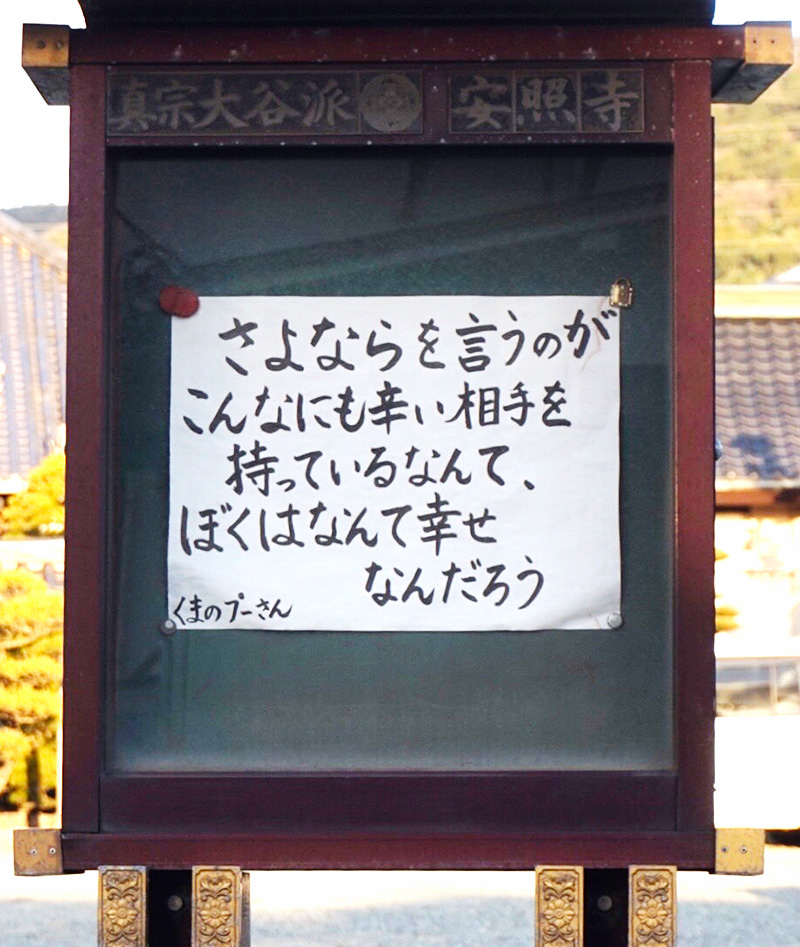 真宗大谷派 安照寺
さよならを言うのが
こんなにも辛い相手を
持っているなんて、
ぼくはなんて幸せ
なんだろう
くまのプーさん